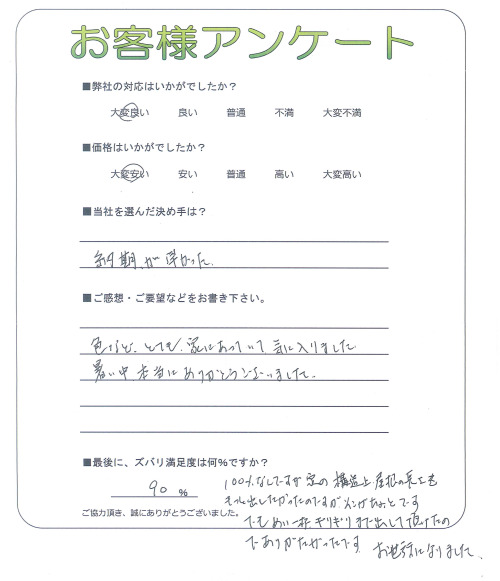 お客様アンケート
■弊社の対応はいかがでしたか？
大変良い 良い 普通 不満 大変不満
■価格はいかがでしたか？
大変安い 安い 普通 高い 大変高い
■当社を選んだ決め手は？
納期が早かった
■ご感想・ご要望などをお書き下さい。
色など、とても、家にあっていて気に入りました
暑い中、本当にありがとうございました。
■最後に、ズバリ満足度は何%ですか？
90 %
100%なしですが家の構造上屋根の長さも
出したかったのですが
でもめい一杯ギリギリまで出して頂けたの
でありがたかったです。お世話になりました、
ご協力頂き、誠にありがとうございました。